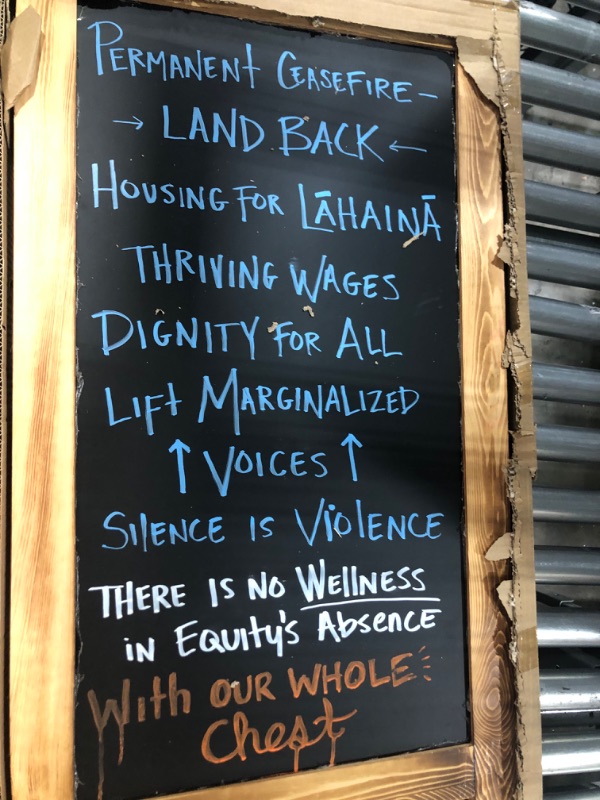 PERMANENT CEASEFIRE –
→ LAND BACK ←
HOUSING FOR LĀHAINĀ
THRIVING WAGES
DIGNITY FOR ALL
LIFT MARGINALIZED
↑ VOICES ↑
SILENCE IS VIOLENCE
THERE IS NO WELLNESS
IN EQUITY'S ABSENCE
With OUR WHOLE
Chest